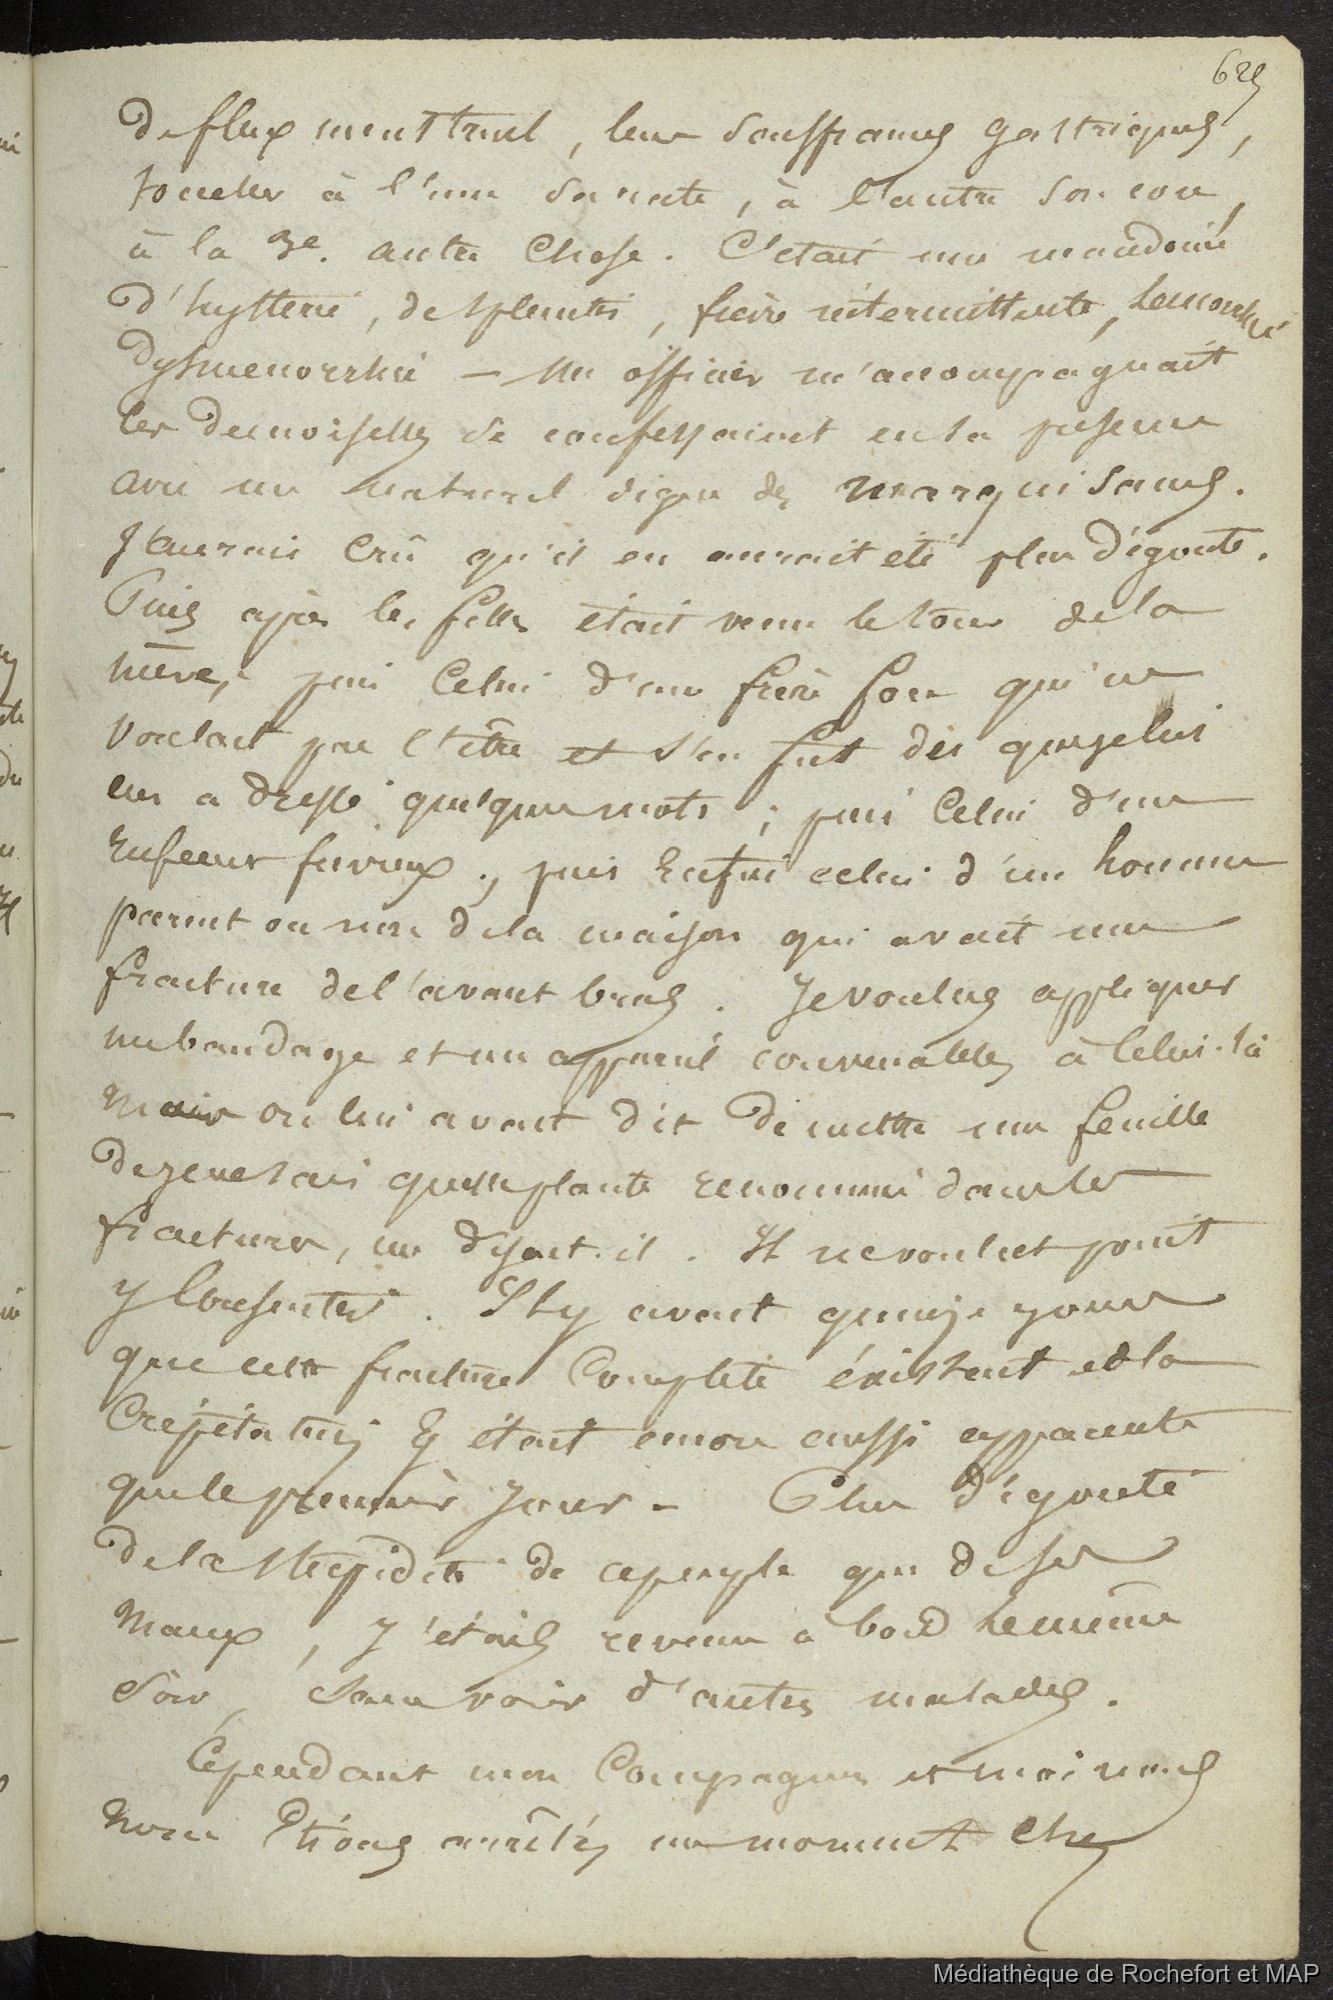 625
de flux menstruel, leurs souffrances gastriques,
toucher à l'une sa rate, à l'autre son cou,
à la 3e. autre chose. C'était une
d'hystérie, de splénite, fièvre intermittente,
dysmenorrhée — Un officier m'accompagnait
les demoiselles se confessaient en sa présence
avec un naturel digne des marquisannes.
J'aurais crû qu'il en aurait été plus dégouté.
Puis après les filles était venu le tour de la
mère, puis celui d'un frère fou qui ne
voulait pas l'être et s'en fut dès que je lui
eus adressé quelques mots ; puis celui d'un
enfant furieux, puis enfin celui d'un homme
parent ou non de la maison qui avait une
fracture de l'avant bras. Je voulus appliquer
un bandage et un appareil convenables à celui-là
mais on lui avait dit de mettre une feuille
de je ne sais quelle plante renommée dans les
fractures, me disait-il. Il ne voulut point
y consentir. Il y avait quinze jours
que cette fracture complète existait et la
crépitation y était encore aussi apparente
que le premier jour — Plus dégouté
de la stupidité de ce peuple que de ses
maux, j'étais revenu à bord le même
soir, sans voir d'autres malades.
Cependant mon compagnon et moi nous
nous étions arrêtés un moment chez
Médiathèque de Rochefort et MAP